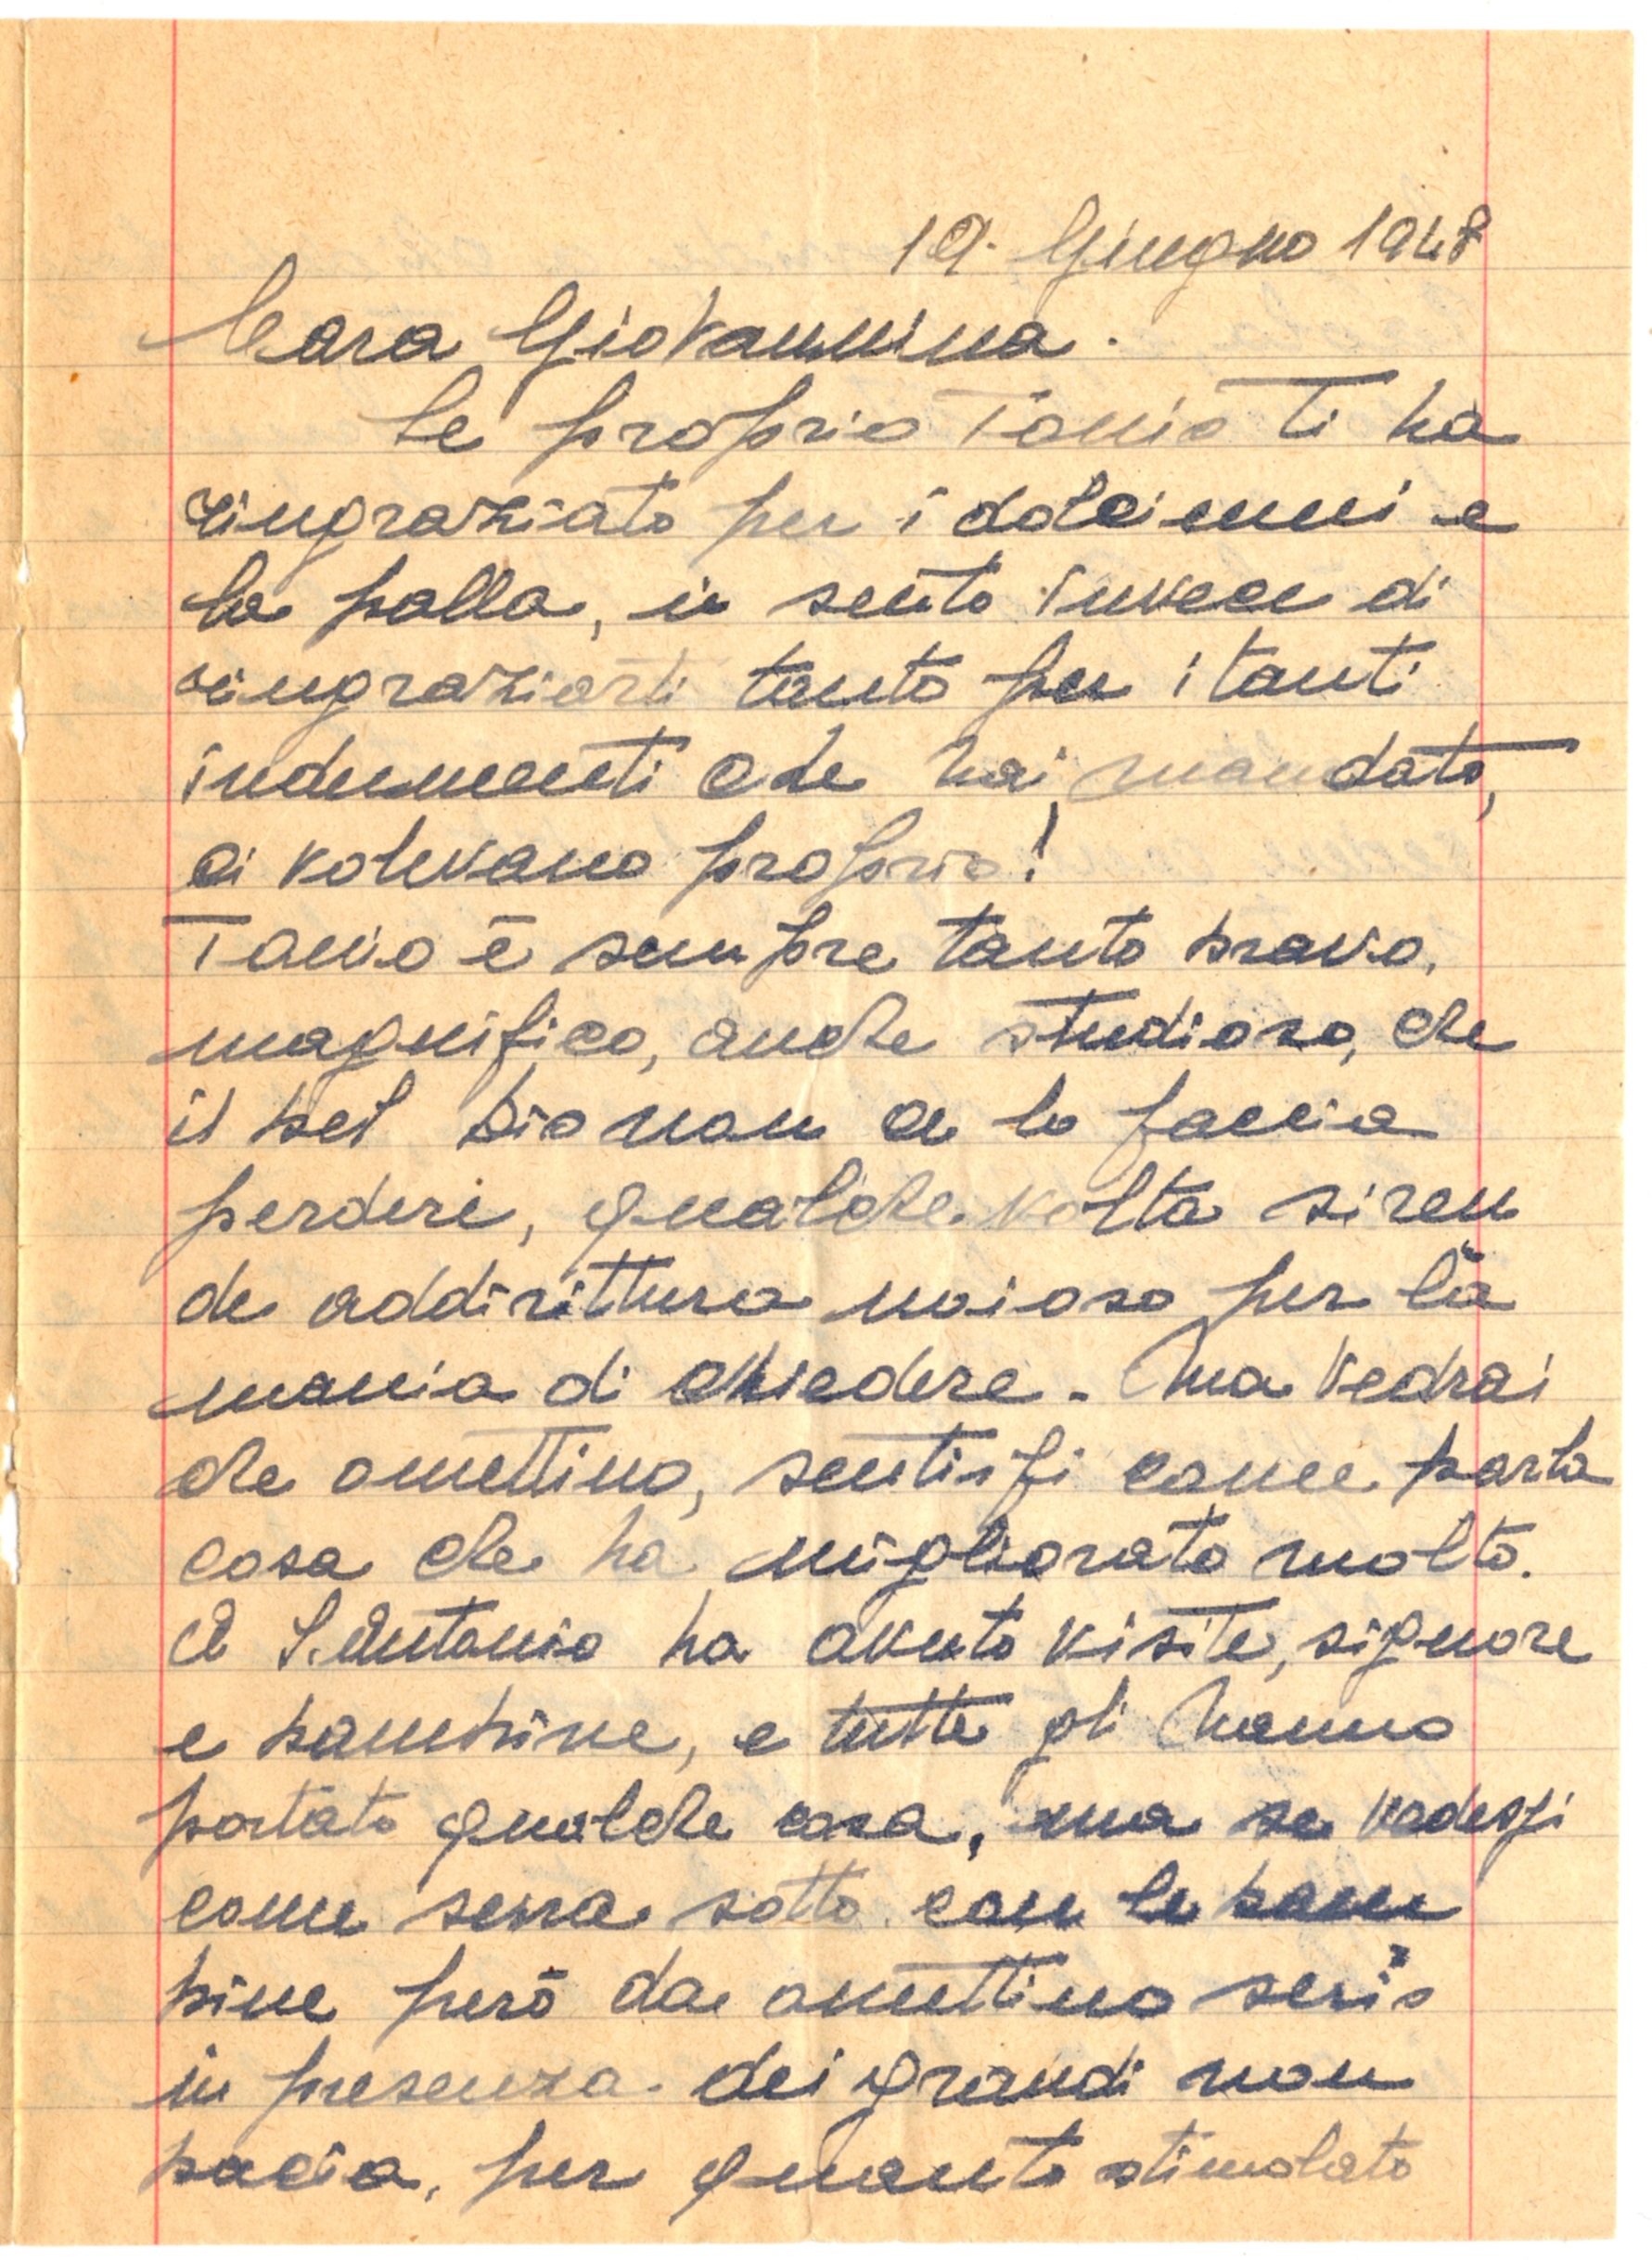 19. Giugno 1948
Cara Giovannina.
Se proprio Tonio ti ha
ringraziato per i dolci
la palla, io sento invece di
ringraziarti tanto per i tanti
indumenti che hai mandato,
ci volevano proprio!
Tonio è sempre tanto bravo,
magnifico, anche studioso, che
il bel Dio non ce lo faccia
perdere, qualche volta si ren
de addirittura noioso per la
mania di chiedere. Ma vedrai
che omettino, sentissi come parla
cosa che ha migliorato molto.
A S. Antonio ha avuto visite, signore
e bambine, e tutte gli hanno
portato qualche cosa, ma se vedessi
come serra sotto con le bam
bine però da omettino serio
in presenza dei grandi non
bacia, per quanto stimolato